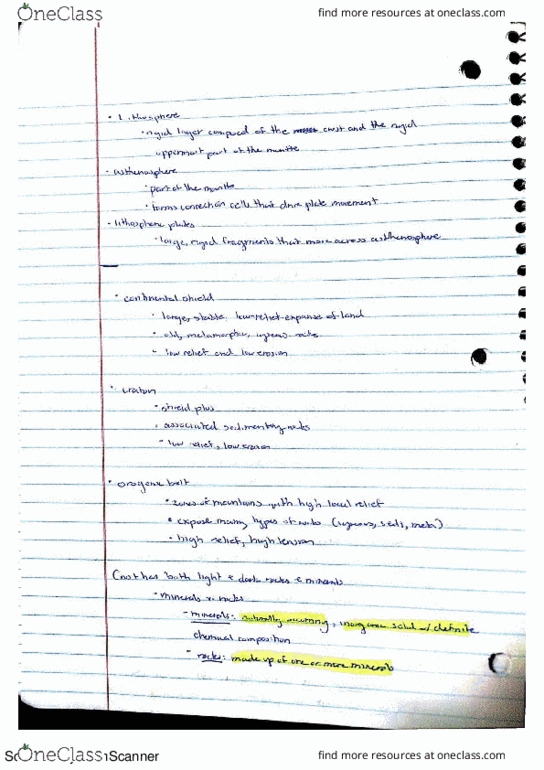 OneClass
find more resources at oneclass.com
• Lithosphere
• rigid layer composed of the crust and the rigid
uppermost part of the mantle
• asthenosphere
• part of the mantle
• forms convection cells that drive plate movement
• lithosphere plates
• large, rigid fragments that move across asthenosphere
• continental shield
• large, stable, low-relief expanse of land
• old, metamorphic, igneous rocks
- low relief and low erosion
• craton
• shield plus
• associated sedimentary rocks
- low relief, low erosion
• orogenic belt
• zones of mountains with high local relief
• expose many types of rocks (igneous, seds, meta)
• high relief, high
Crust has both light + dark rocks & minerals
• minerals v. rocks
- minerals: naturally occurring, inorganic solid w/ definite
chemical composition
- rocks: made up of one or more minerals
OneClass
Scanner
find more resources at oneclass.com